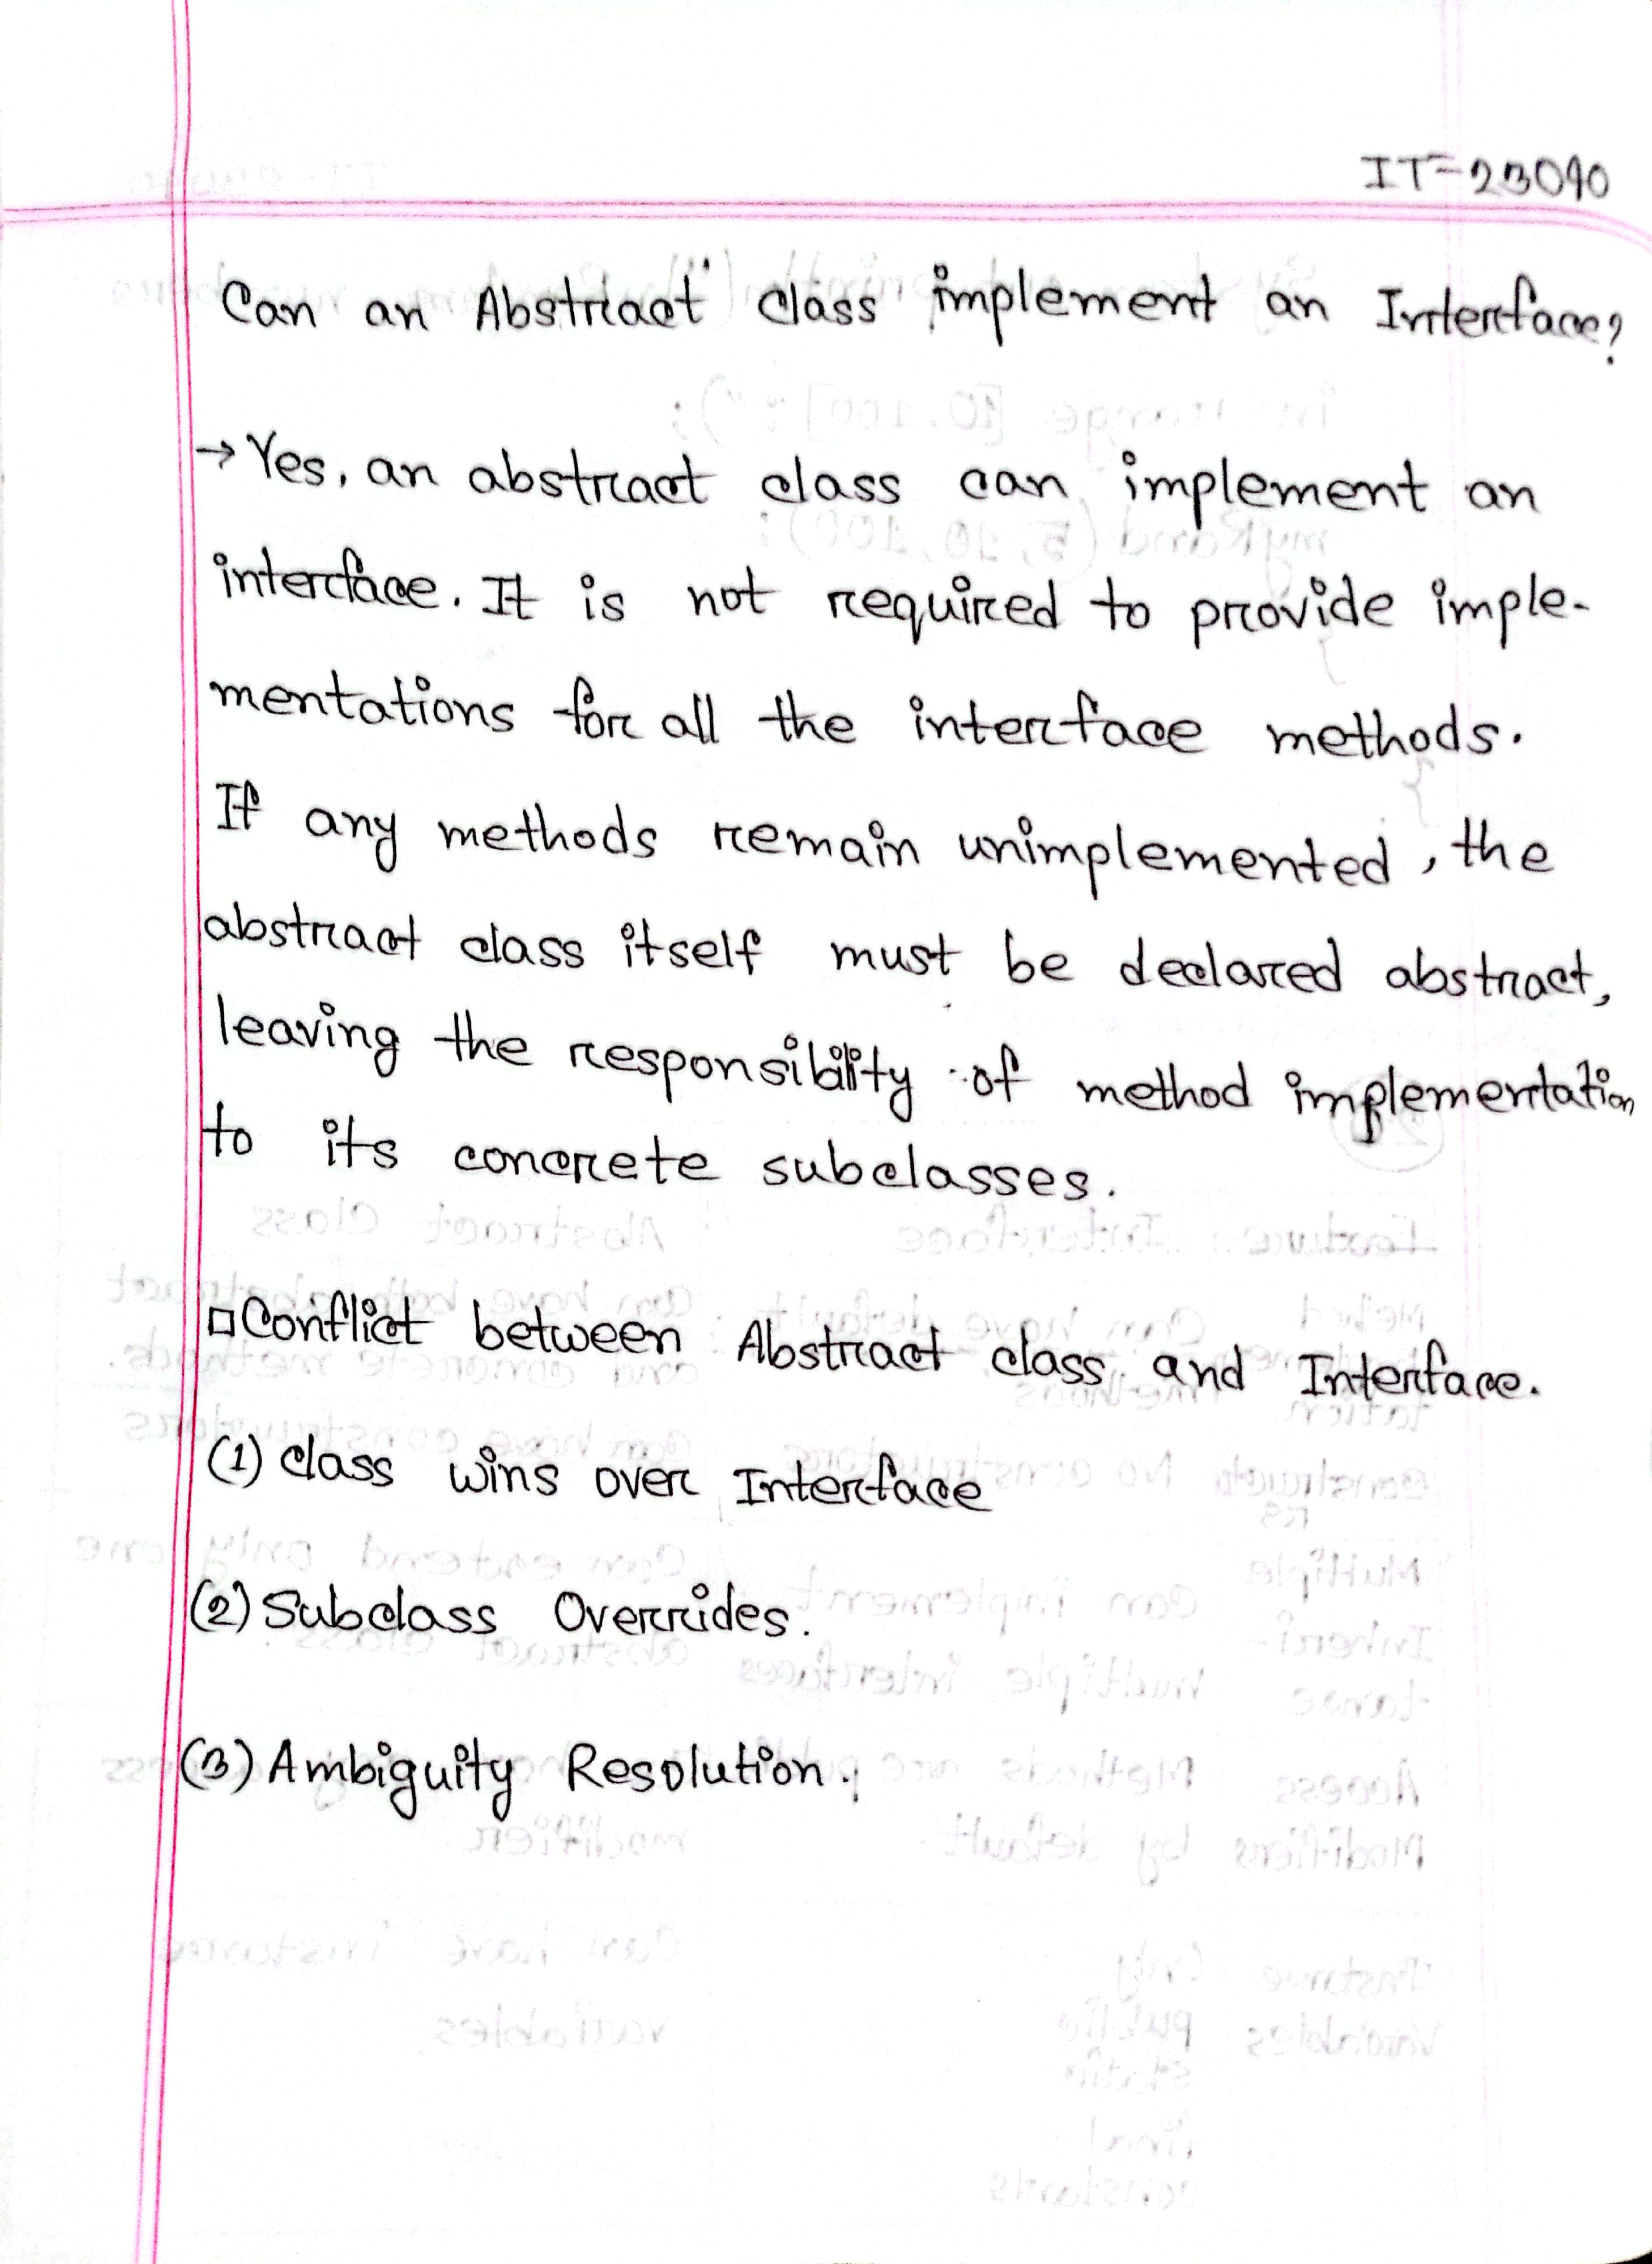 IT-23090
Can an Abstract class implement an Interface?
→ Yes, an abstract class can implement an
interface. It is not required to provide imple-
mentations for all the interface methods.
If any methods remain unimplemented, the
abstract class itself must be declared abstract,
leaving the responsibility of method implementation
to its concrete subclasses.
□ Conflict between Abstract class and Interface.
(1) class wins over Interface
(2) Subclass Overrides.
(3) Ambiguity Resolution.